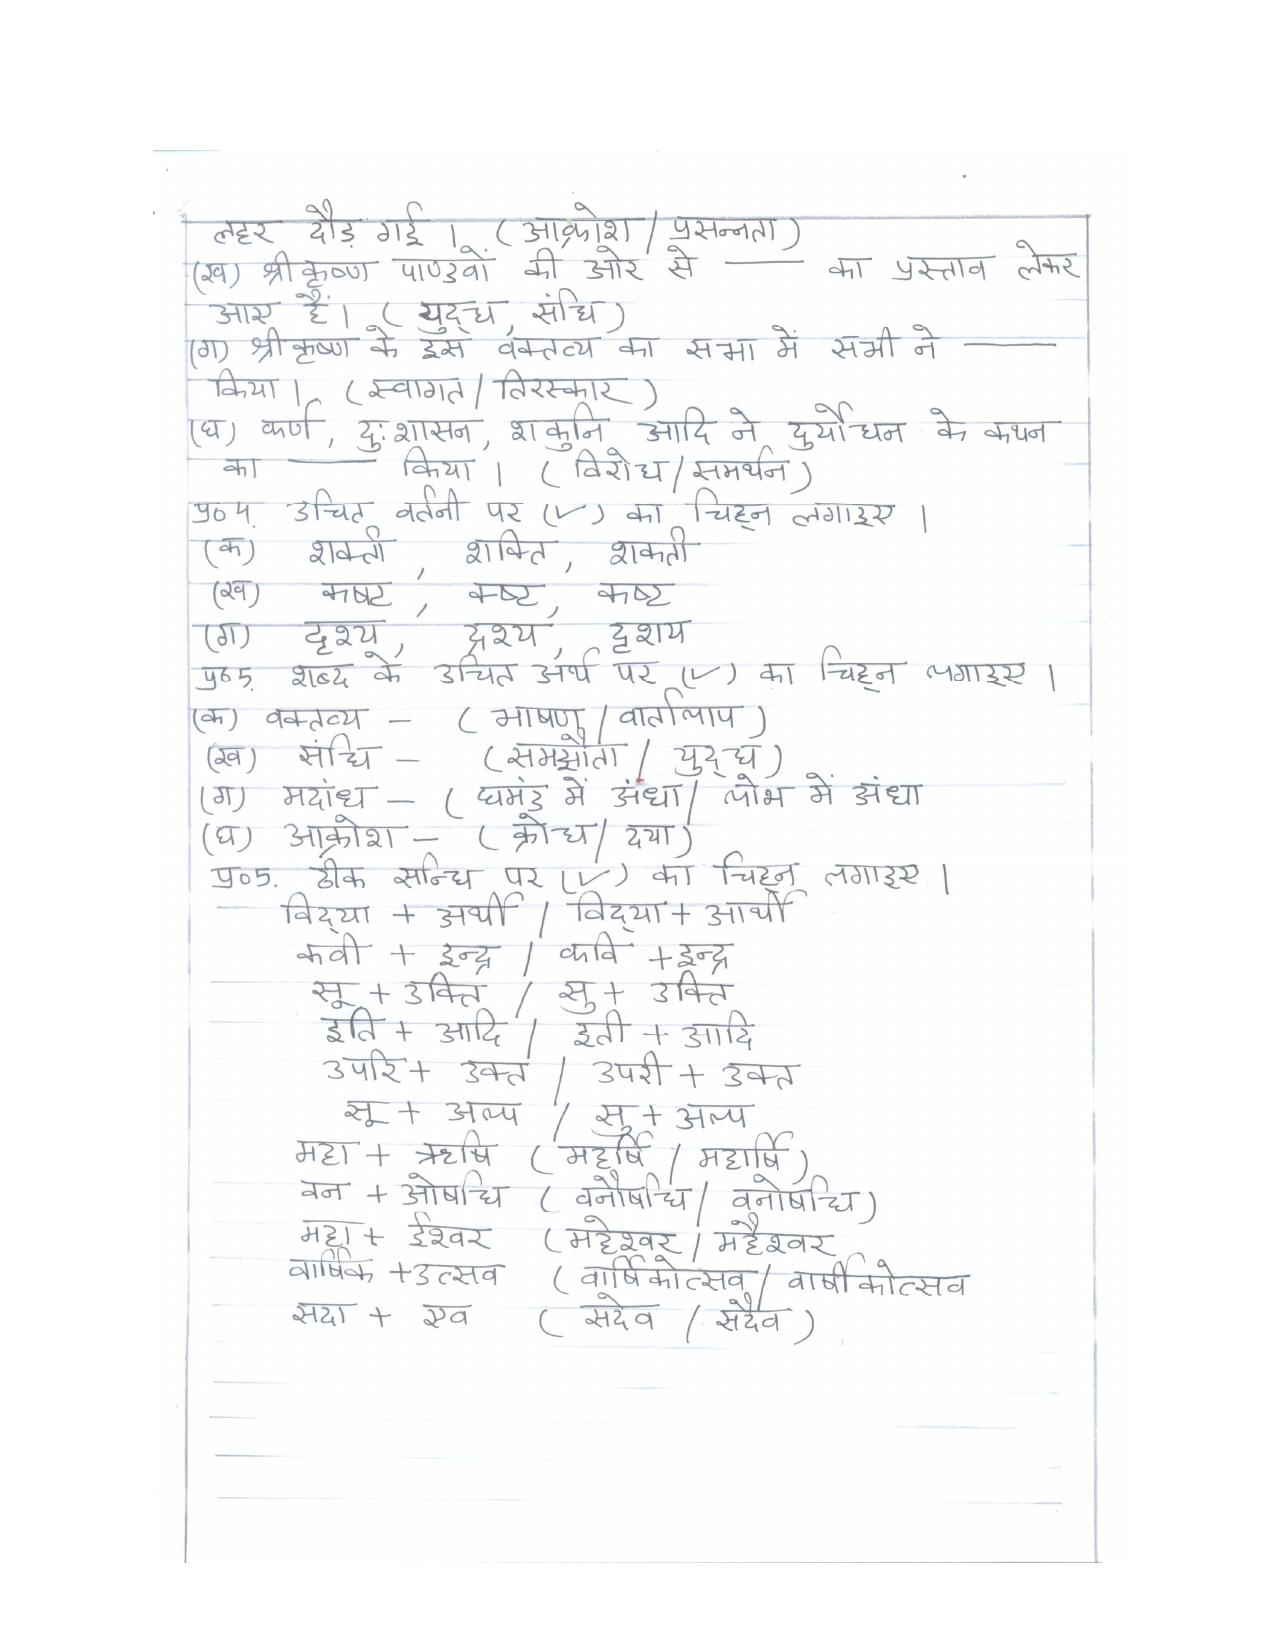 लहर दौड़ गई । ( आक्रोश / प्रसन्नता )
(ख) श्रीकृष्ण पाण्डवों की ओर से —— का प्रस्ताव लेकर
आए हैं। ( युद्ध , संधि )
(ग) श्रीकृष्ण के इस वक्तव्य का सभा में सभी ने ——
किया । ( स्वागत / तिरस्कार )
(घ) कर्ण , दुःशासन , शकुनि आदि ने दुर्योधन के कथन
का —— किया । ( विरोध / समर्थन )
प्र०4. उचित वर्तनी पर (✓) का चिह्न लगाइए ।
(क) शक्ती , शक्ति , शकती
(ख) कषट , क्ष्ट , कष्ट
(ग) दृश्य , द्रश्य , दृशय
प्र०5. शब्द के उचित अर्थ पर (✓) का चिह्न लगाइए ।
(क) वक्तव्य – ( भाषण / वार्तालाप )
(ख) संधि – ( समझौता / युद्ध )
(ग) मदांध – ( घमंड में अंधा / लोभ में अंधा
(घ) आक्रोश – ( क्रोध / दया )
प्र०5. ठीक सन्धि पर (✓) का चिह्न लगाइए ।
विद्या + अर्थी / विद्या + आर्थी
कवी + इन्द्र / कवि + इन्द्र
सू + उक्ति / सु + उक्ति
इति + आदि / इती + आदि
उपरि + उक्त / उपरी + उक्त
सू + अल्प / सु + अल्प
महा + ऋषि ( महर्षि / महार्षि )
वन + ओषधि ( वनौषधि / वनोषधि )
महा + ईश्वर ( महेश्वर / महैश्वर
वार्षिक + उत्सव ( वार्षिकोत्सव / वार्षीकोत्सव
सदा + एव ( सदेव / सदैव )